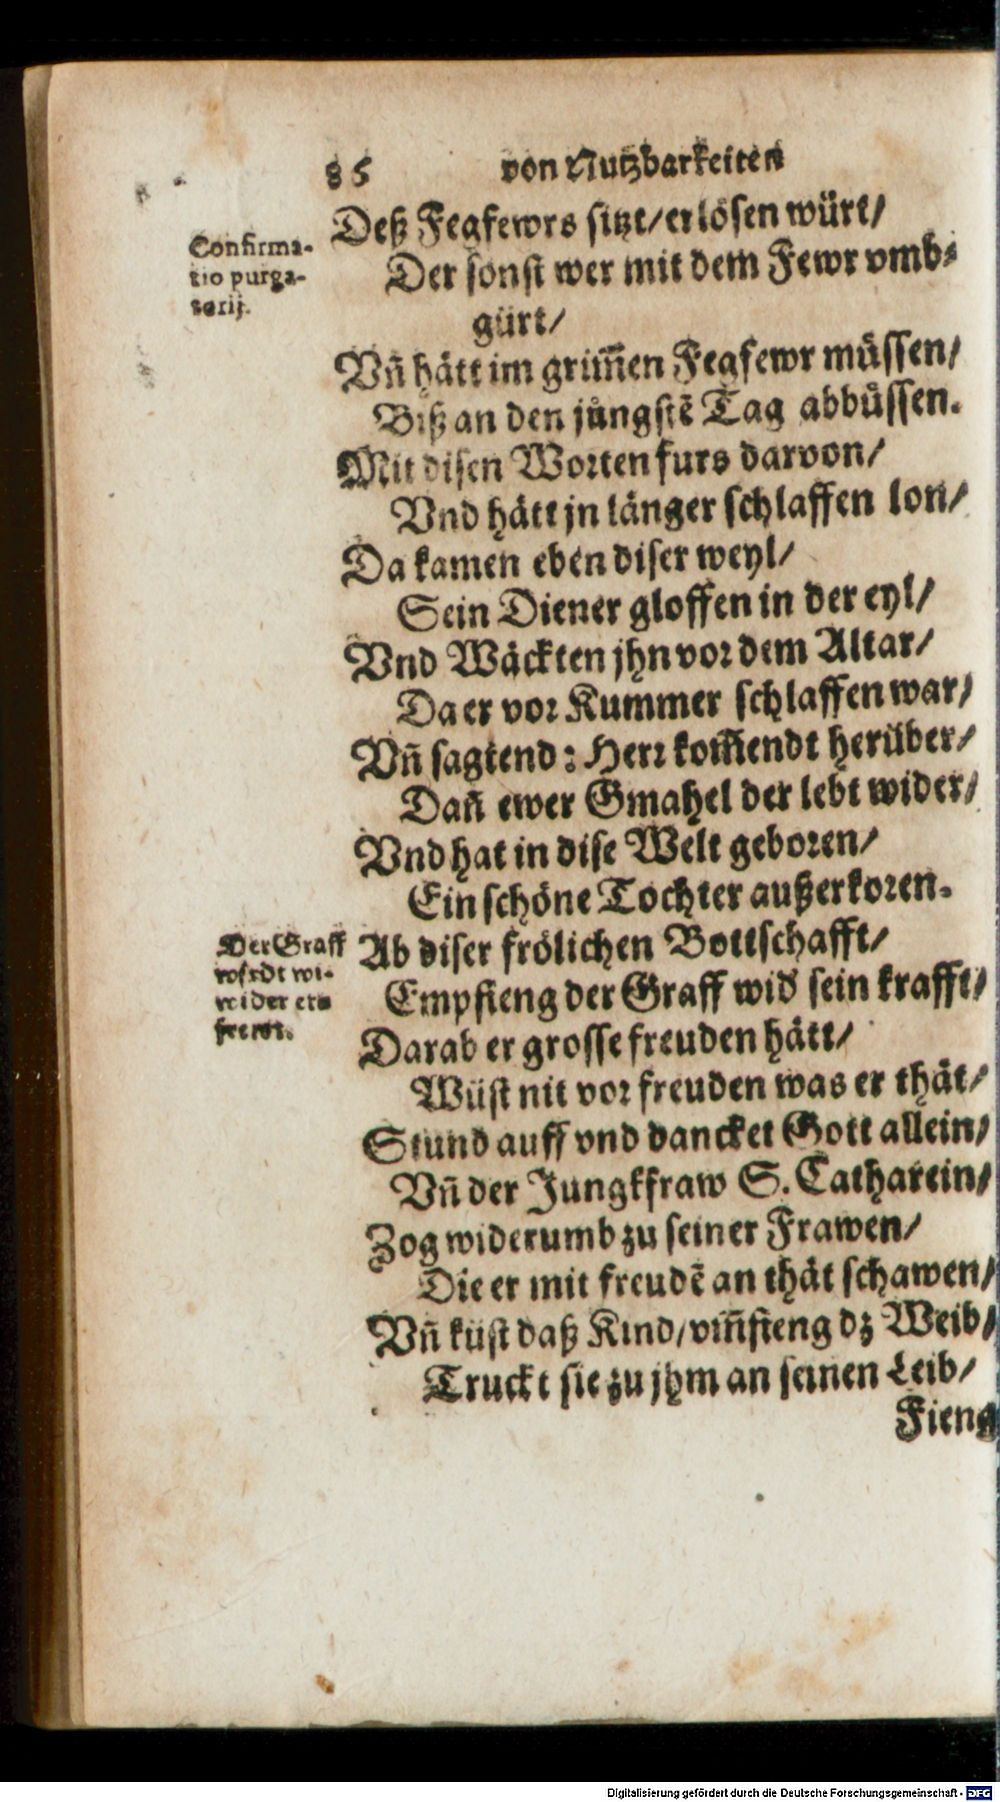 86 von Nutzbarkeiten
Deß Fegfewrs sitzt/erlösen würt/
Confirma-
tio purga-
torij.
Der sonst wer mit dem Fewr vmb-
gürt/
Vñ hätt im grim̃en Fegfewr müssen/
Biß an den jüngstẽ Tag abbüssen.
Mit disen Worten furs darvon/
Vnd hätt jn länger schlaffen lon/
Da kamen eben diser weyl/
Sein Diener gloffen in der eyl/
Vnd Wäckten jhn vor dem Altar/
Da er vor Kummer schlaffen war/
Vñ sagtend: Herr kom̃endt herüber/
Dañ ewer Gmahel der lebt wider/
Vnd hat in dise Welt geboren/
Ein schöne Tochter außerkoren.
Der Graff
wi-
wider
Ab diser frölichen Bottschafft/
Empfieng der Graff wid̕ sein krafft/
Darab er grosse freuden hätt/
Wüst nit vor freuden was er thät/
Stund auff vnd dancket Gott allein/
Vñ der Jungkfraw S. Catharein/
Zog widerumb zu seiner Frawen/
Die er mit freudẽ an thät schawen/
Vñ küst daß Kind/vm̃fieng dz Weib/
Truckt sie zu jhm an seinen Leib/
Fieng
Digitalisierung gefördert durch die Deutsche Forschungsgemeinschaft - DFG